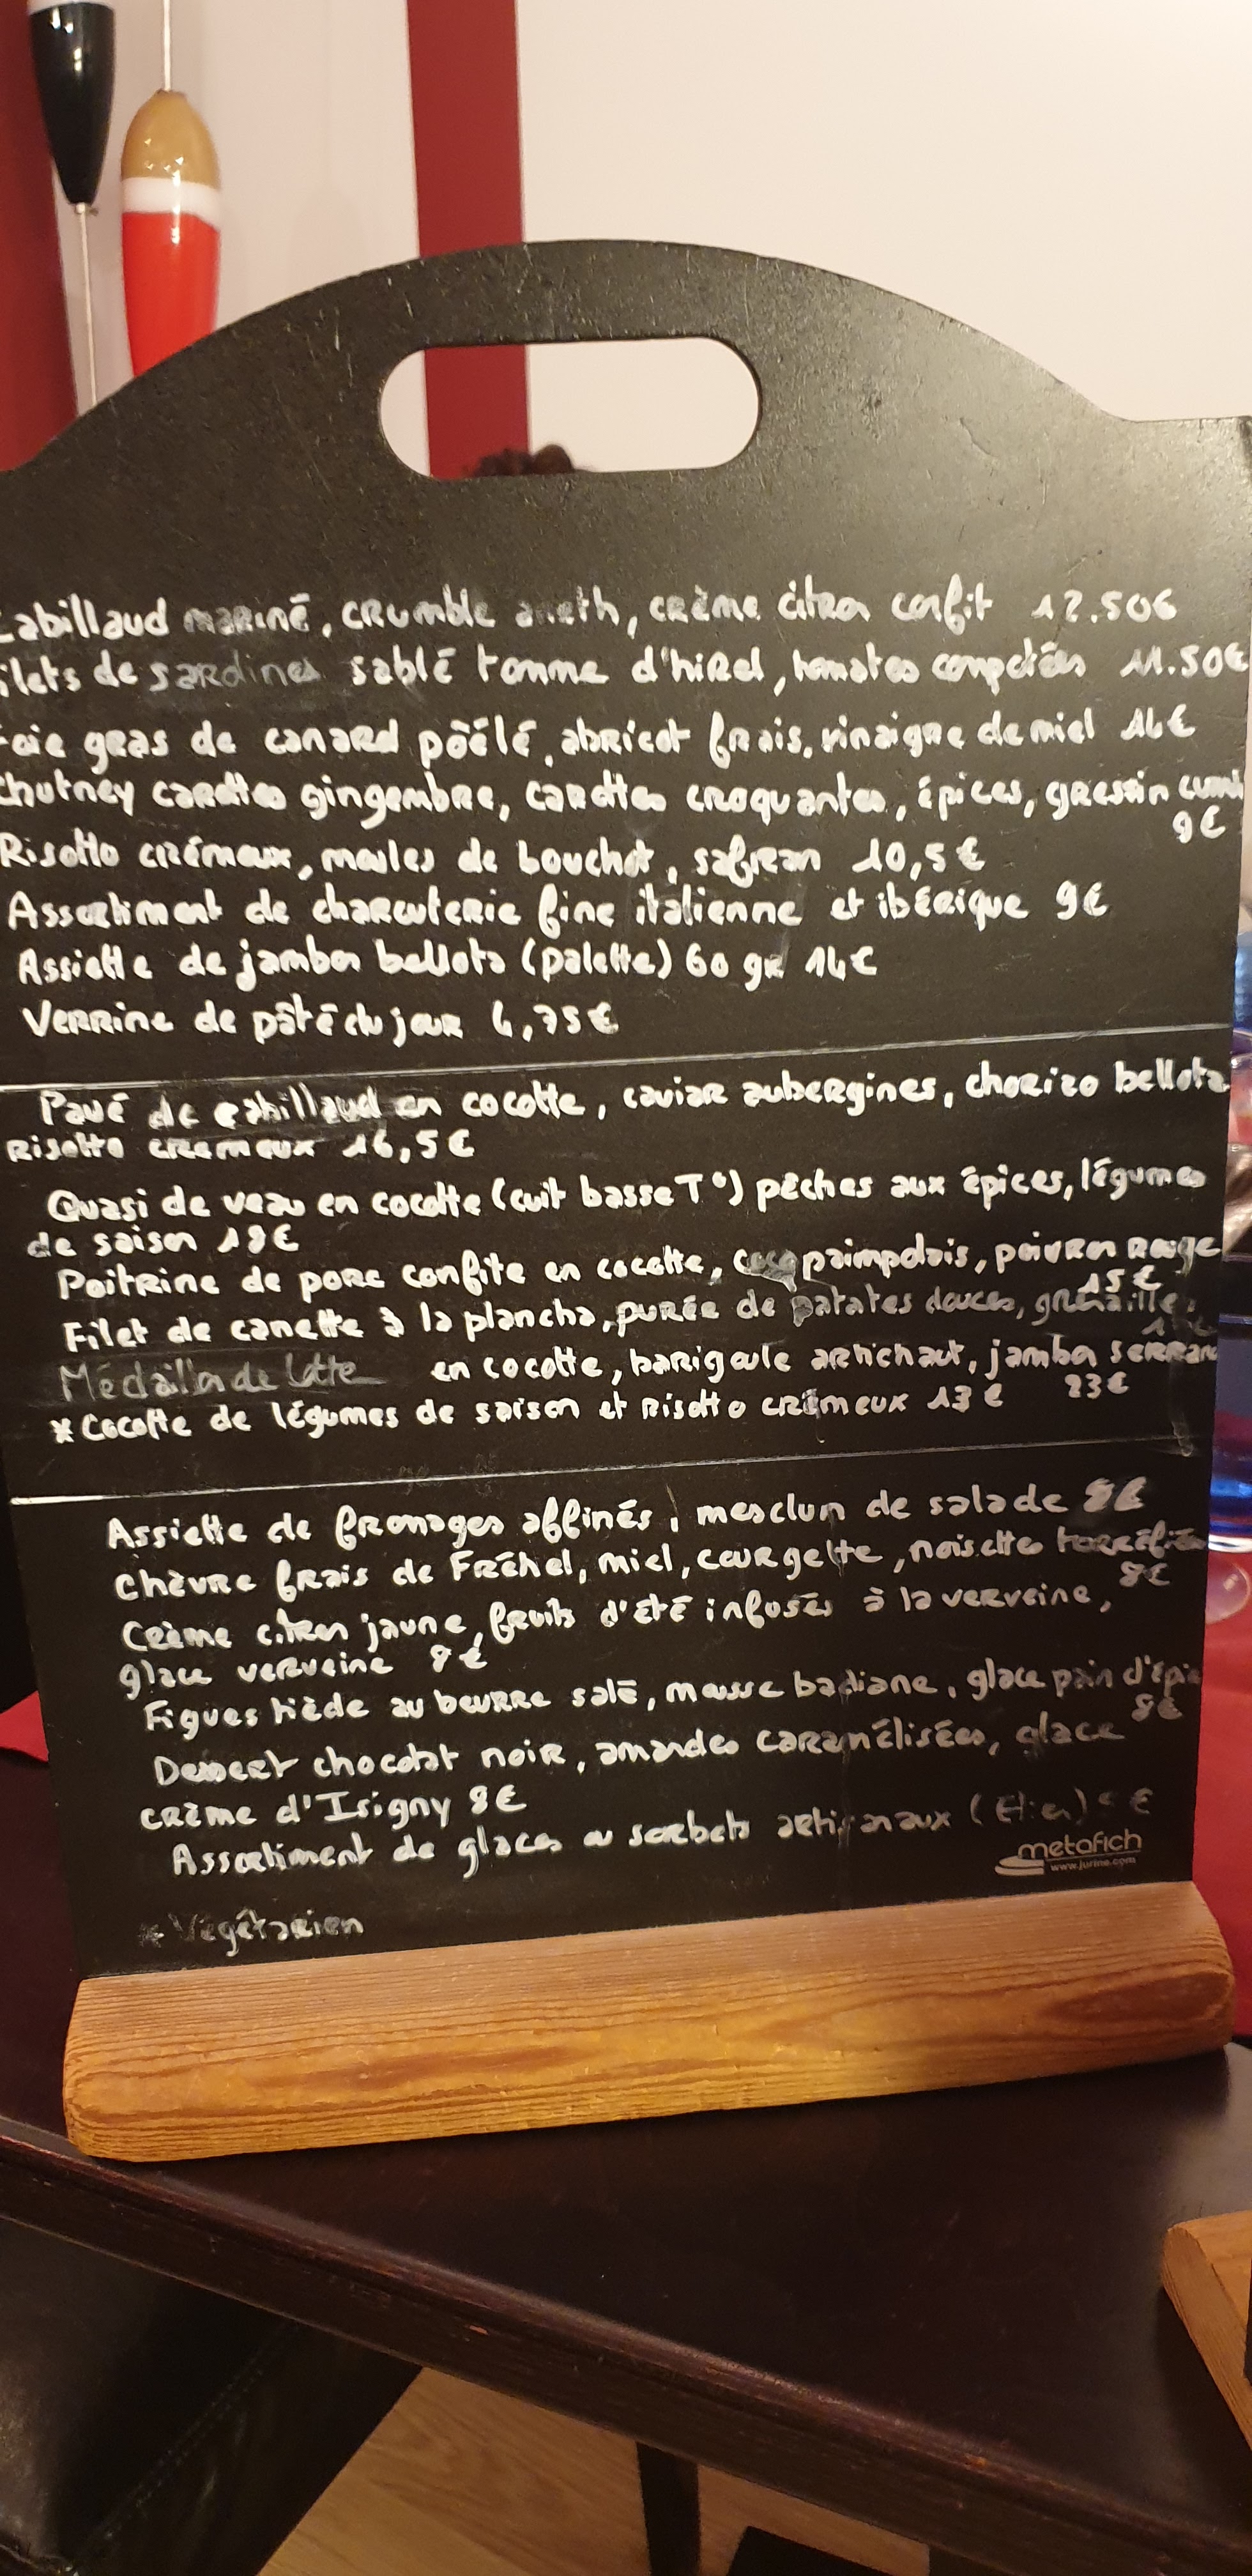 Cabillaud mariné, crumble aneth, crème citron confit 12.50€
ilets de sardines sablé tomme d'hirel, tomates compotées 11.50€
Foie gras de canard pôêlé, abricot frais, vinaigre de miel 14€
Chutney carottes gingembre, carottes croquantes, épices, gressin cumi
9€
Risotto crémeux, moules de bouchot, safran 10,5€
Assortiment de charcuterie fine italienne et ibérique 9€
Assiette de jambon bellota (palette) 60 gr 14€
Verrine de pâté du jour 4,75€
Pavé de cabillaud en cocotte, caviar aubergines, chorizo bellota
Risotto cremeux 16,5€
Quasi de veau en cocotte (cuit basse T°) pêches aux épices, légumes
de saison 19€
Poitrine de porc confite en cocotte, coco paimpolais, poivron rouge
15€
Filet de canette à la plancha, purée de patates douces, grenailles
Médaillon de lotte en cocotte, barigoule artichaut, jambon serrano
23€
*Cocotte de légumes de saison et risotto crémeux 13€
Assiette de fromages affinés, mesclun de salade 8€
Chèvre frais de Fréhel, miel, courgette, noisettes torréfiées
8€
Crème citron jaune, fruits d'été infusés à la verveine,
glace verveine 8€
Figues tiède au beurre salé, mousse badiane, glace pain d'épic
8€
Dessert chocolat noir, amandes caramélisées, glace
crème d'Isigny 8€
Assortiment de glaces ou sorbets artisanaux €
metafich
www.jurine.com
* Végétarien